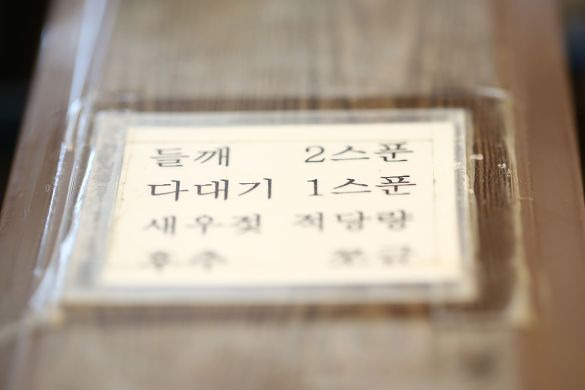 들깨 2스푼
다대기 1스푼
새우젓 적당량
후추 쪼금